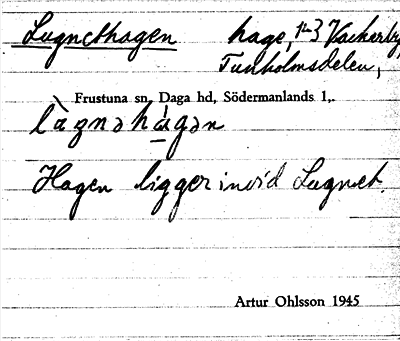 Lugnethagen hage, 1-3 Vackerby,
Tunholmsdelen,
Frustuna sn, Daga hd, Södermanlands l,.
lùgnəhágən
Hagen ligger invid Lugnet.
Artur Ohlsson 1945